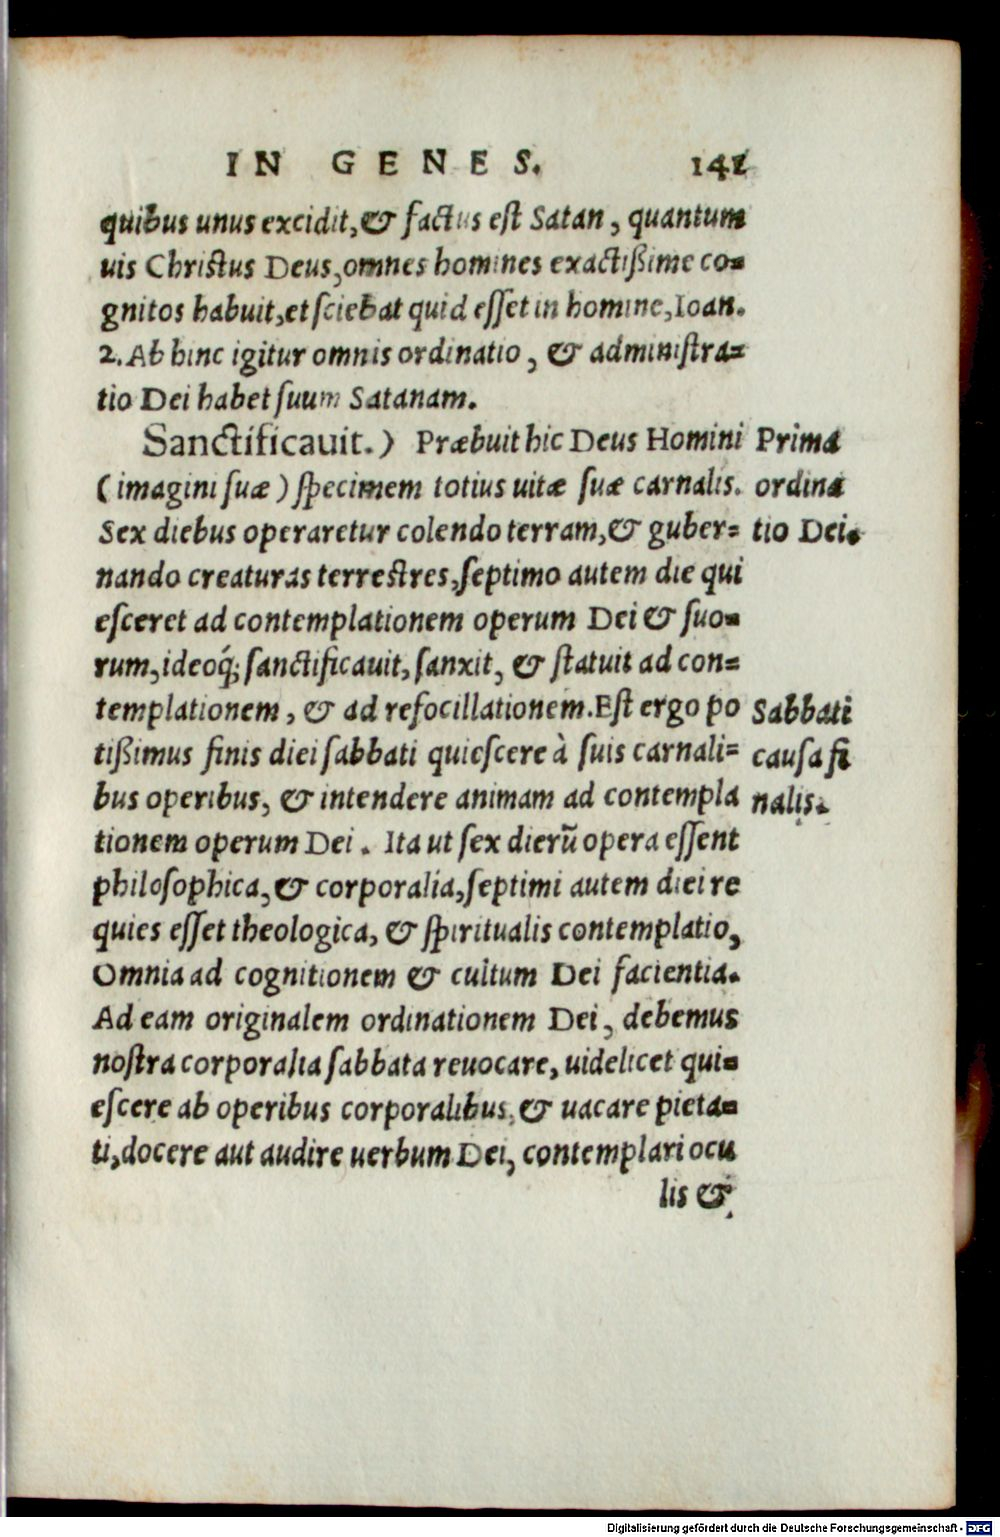 IN GENES. 141
quibus unus excidit, & factus est Satan, quantum
uis Christus Deus, omnes homines exactißime co=
gnitos habuit, et sciebat quid esset in homine, Ioan.
2. Ab hinc igitur omnis ordinatio, & administra=
tio Dei habet suum Satanam.
Sanctificauit.) Præbuit hic Deus Homini
(imagini suæ) specimem totius uitæ suæ carnalis.
Sex diebus operaretur colendo terram, & guber=
nando creaturas terrestres, septimo autem die qui
esceret ad contemplationem operum Dei & suo=
rum, ideoq́; sanctificauit, sanxit, & statuit ad con=
templationem, & ad refocillationem. Est ergo po
tißimus finis diei sabbati quiescere à suis carnali=
bus operibus, & intendere animam ad contempla
tionem operum Dei. Ita ut sex dierũ opera essent
philosophica, & corporalia, septimi autem diei re
quies esset theologica, & spiritualis contemplatio,
Omnia ad cognitionem & cultum Dei facientia.
Ad eam originalem ordinationem Dei, debemus
nostra corporalia sabbata reuocare, uidelicet qui=
escere ab operibus corporalibus, & uacare pieta=
ti, docere aut audire uerbum Dei, contemplari ocu
lis &
Prima
ordina
tio Dei.
Sabbati
causa fi
nalis.
Digitalisierung gefördert durch die Deutsche Forschungsgemeinschaft - DFG